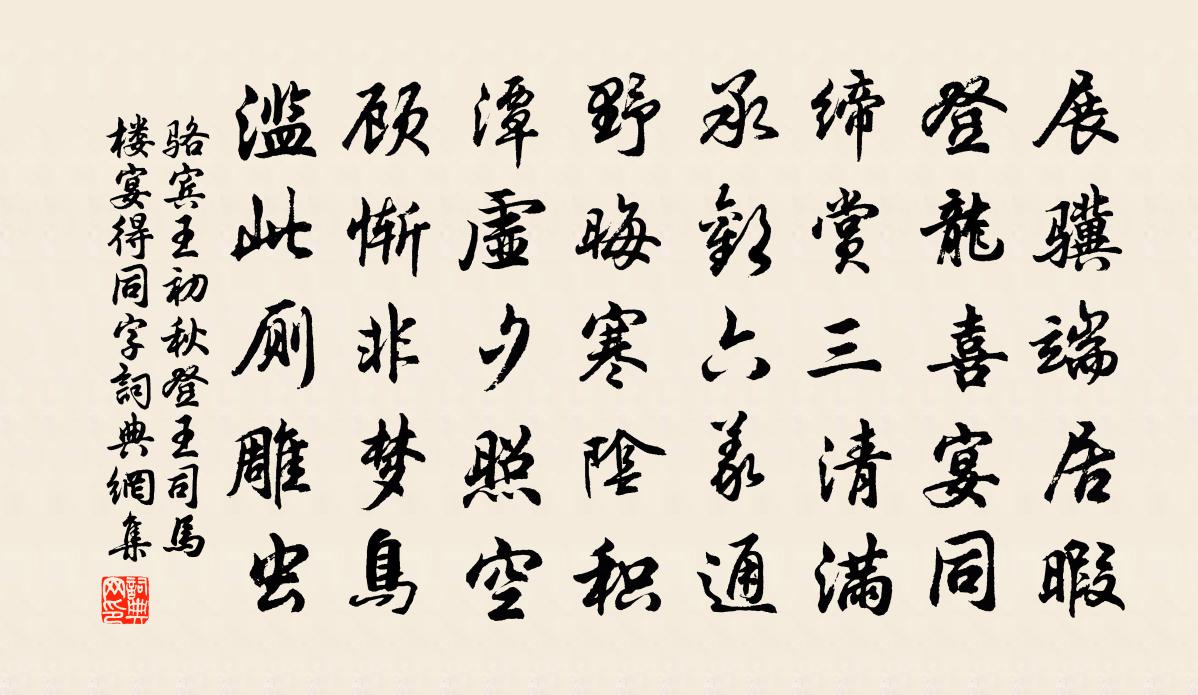 展骥端居暇
登龍喜宴同
缔赏三清满
承歡六義通
野晦寒陰积
潭虛夕照空
顾慚非梦鳥
滥此厕雕虫
骆宾王初秋登王司馬
楼宴得同字詞典網集
詞典网印